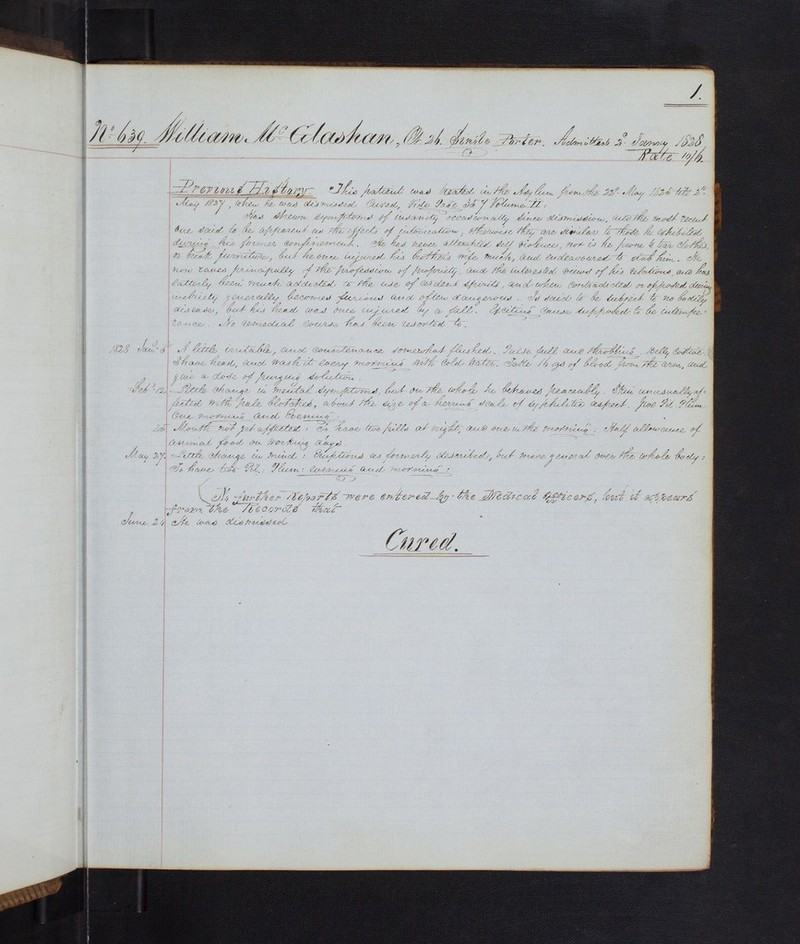 1.
No. 639. William McGlashan, Æt. 26. Porter. Admitted 2d. Jany. 1828
Rate 10/6.
Previous History. This patient was treated in the Asylum from the 23d. May 1826 till 2d.
May 1827, when he was dismissed Cured, Vide Page 267 Volume II.
Has shewn symptoms of insanity occasionally since dismission, and the most recent
one said to be apparent as the effects of intoxication, otherwise they are similar to those he exhibited
during his former confinement. He has never attempted self violence, nor is he prone to tear clothes,
or break furniture, but he once injured his brother's wife much, and endeavoured to stab him. He
now raves principally of the profession of propriety, and the interested views of his relations, and has
latterly been much addicted to the use of ardent spirits, and when contradicted or opposed during
generally becomes furious and often dangerous. Is said to be subject to no bodily
disease, but his head was once injured by a fall. Exciting cause supposed to be intempe-
rance. No remedial course has been resorted to.
1828 Jany. 5 A little irritable, and countenance somewhat flushed. Pulse full and throbbing, belly costive.
Shave head, and wash it every morning with Cold Water. Take 14 oz of blood from the arm, and
give a dose of purging solution.
Feby. 12 Little change in mental symptoms, but on the whole he behaves peaceably. Skin unusually af-
fected with pale blotches, about the size of a herring scale of syphilitic aspect. Pil. Plum:
One morning and Evening.
26 Mouth not yet affected: To have two pills at night, and one in the morning: Half allowance of
animal food on working days
May 27 Little change in mind: Eruptions as formerly described, but more general over the whole body:
To have two Pil. Plum: evening and morning:
(No further Reports were entered by the Medical Officers, but it appears
from the Records that
June 24 He was dismissed
Cured.